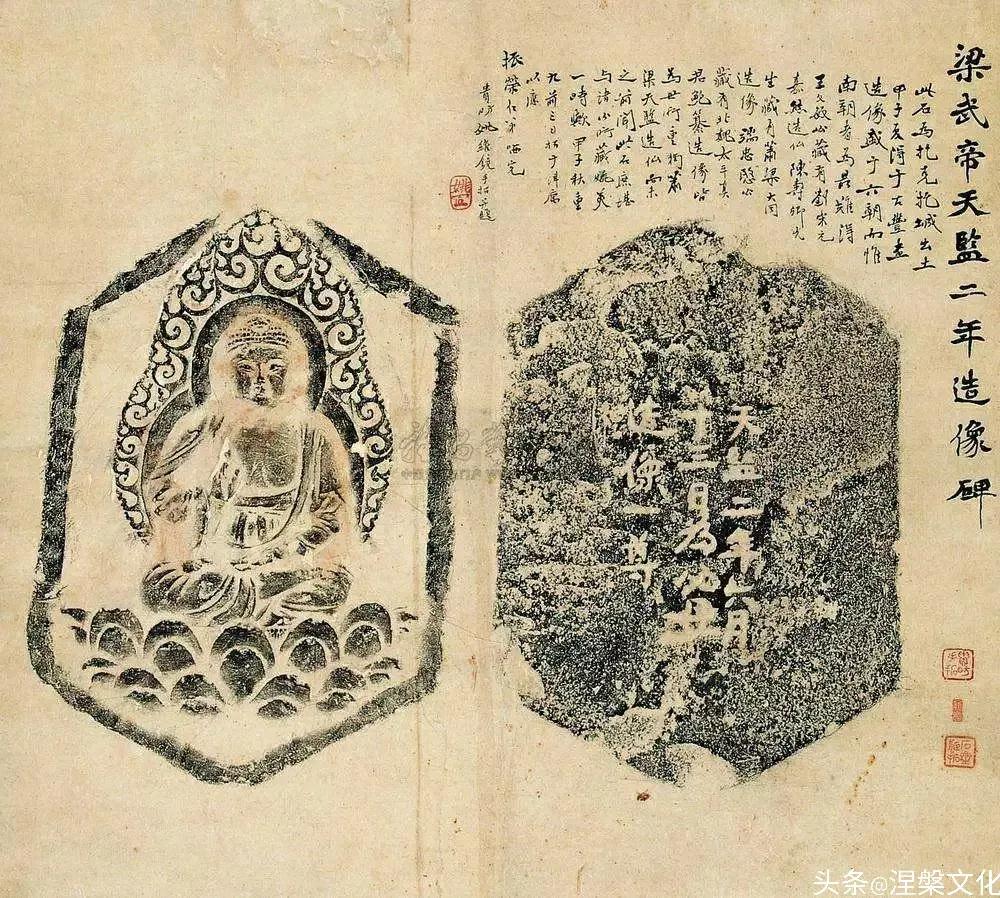 梁武帝天監二年造像碑
此石為扎克扎城出土
甲子夏得于古豐並
造像盛于六朝而惟
南朝者為最難得
王文敏公藏有劉宋元
嘉熊造仙陳壽卿先
生藏有蕭梁大同
造像端忠愍公
藏有北魏太平真
君鮑纂造像皆
為世所重獨蕭
梁天監造仙尚未
之前聞此石庶堪
与諸公所藏媲美
一時歟甲子秋重
九前三日拓于
以應
振榮仁弟
貴昉姚
天監二年六月
十二日為父母
造像一尊
头条@涅槃文化